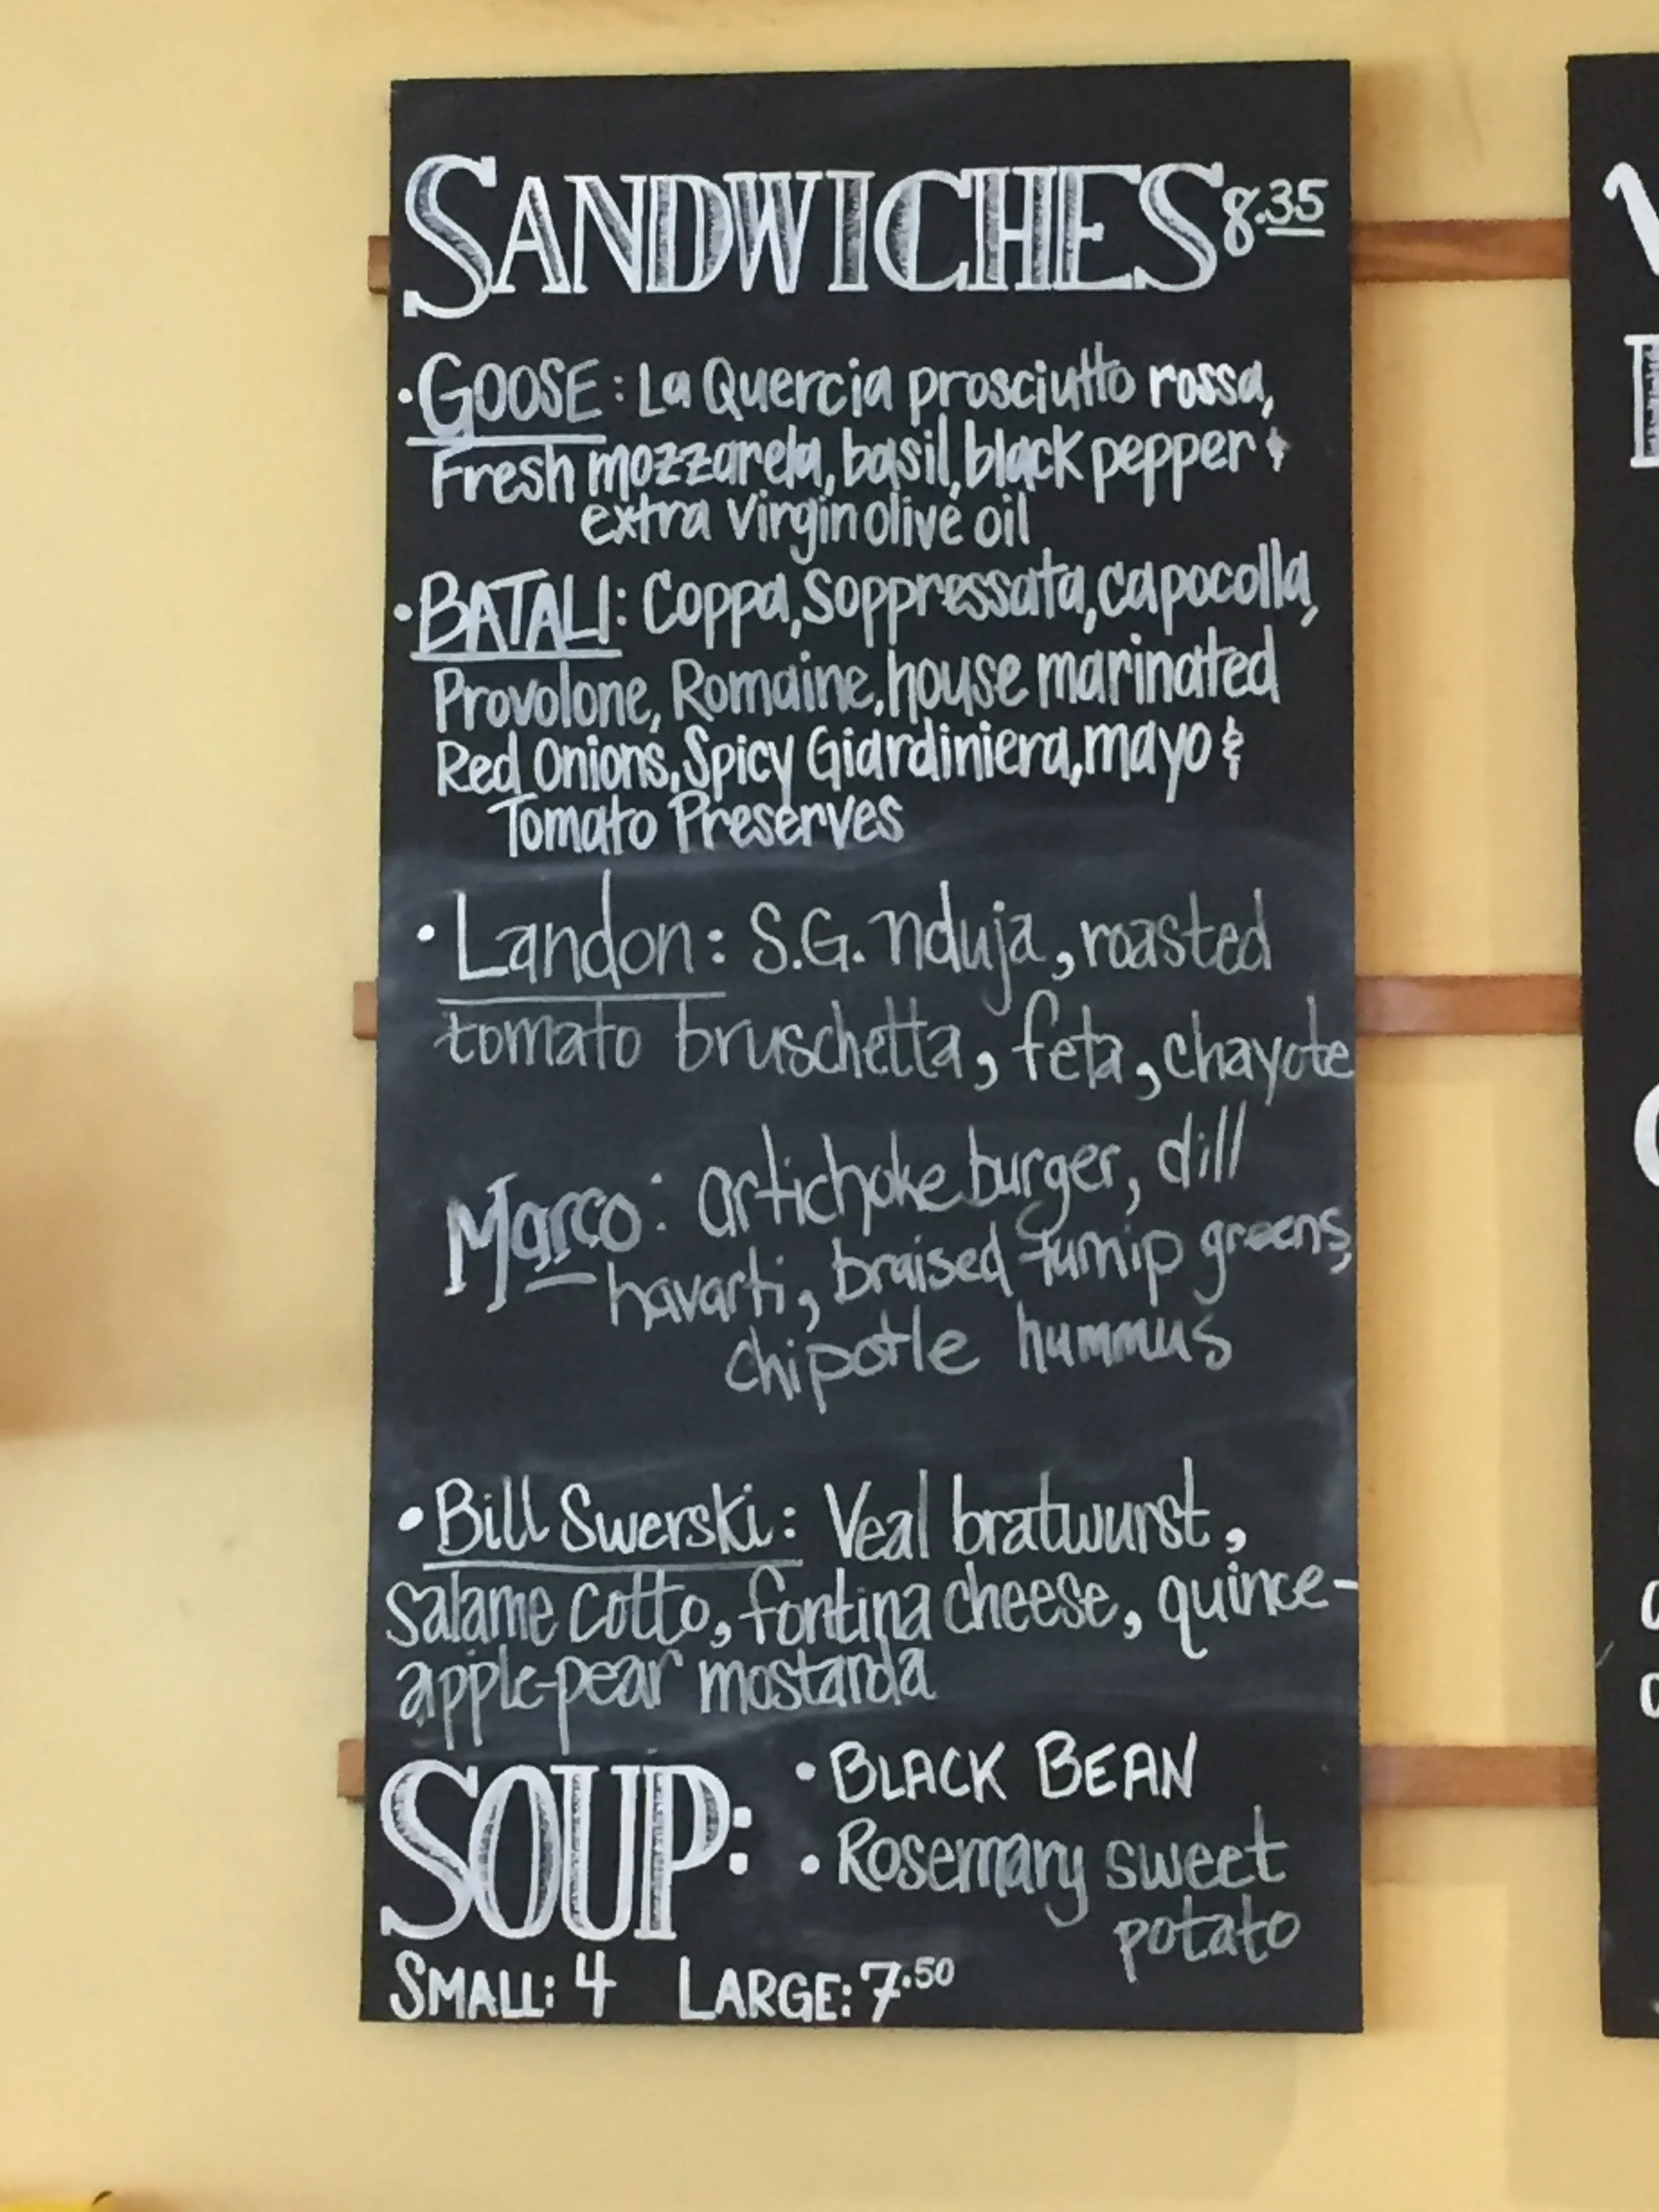 SANDWICHES 8.35
• GOOSE: La Quercia prosciutto rossa,
Fresh mozzarela, basil, black pepper &
extra Virgin olive oil
• BATALI: Coppa, Soppressata, capocolla,
Provolone, Romaine, house marinated
Red Onions, Spicy Giardiniera, mayo &
Tomato Preserves
• Landon: S.G. nduja, roasted
tomato bruschetta, feta, chayote
Marco: artichoke burger, dill
havarti, braised turnip greens,
chipotle hummus
• Bill Swerski: Veal bratwurst,
salame cotto, fontina cheese, quince-
apple-pear mostarda
SOUP: • BLACK BEAN
• Rosemary sweet
potato
SMALL: 4 LARGE: 7.50